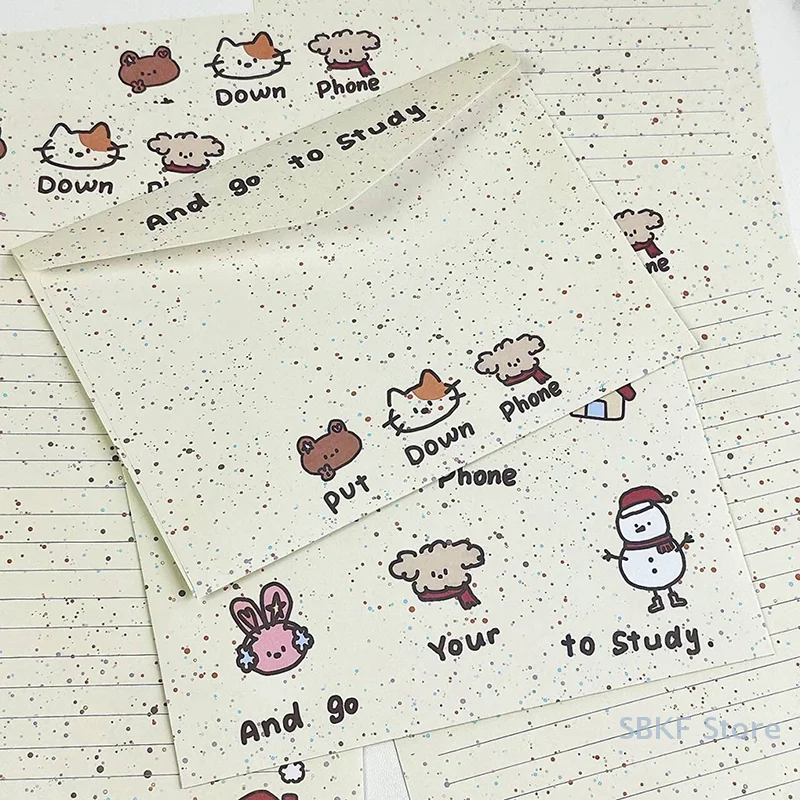 Down Phone
Down
And go to Study.
Put Down Phone
Phone
And go Your to Study.
SBKF Store